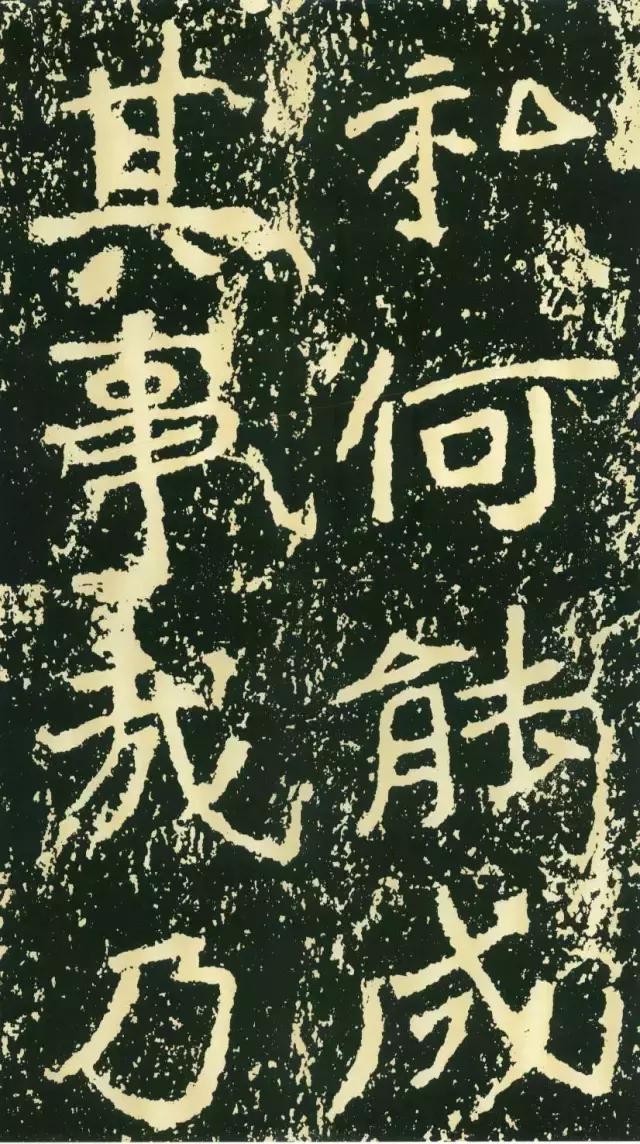 私何能成
其事哉乃